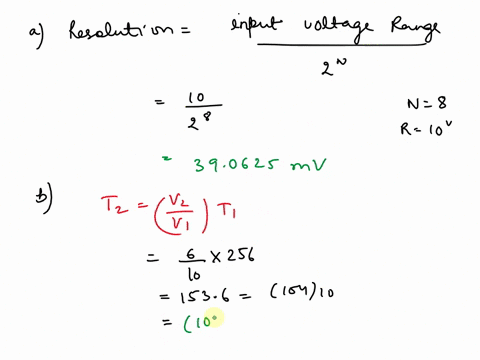 a) Resolution = input voltage Range / 2^N
= 10 / 2^8 N = 8
R = 10^V
= 39.0625 mV
b) T2 = (V2 / V1) T1
= 6 / 10 × 256
= 153.6 = (154)10
= (10